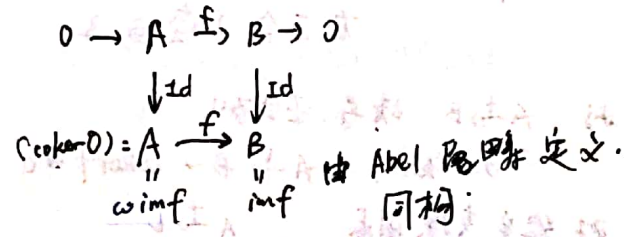 0 → A f→ B → 0
↓Id ↓Id
(coker0) = A f→ B
" "
coimf imf
由 Abel 范畴 定义.
同构.